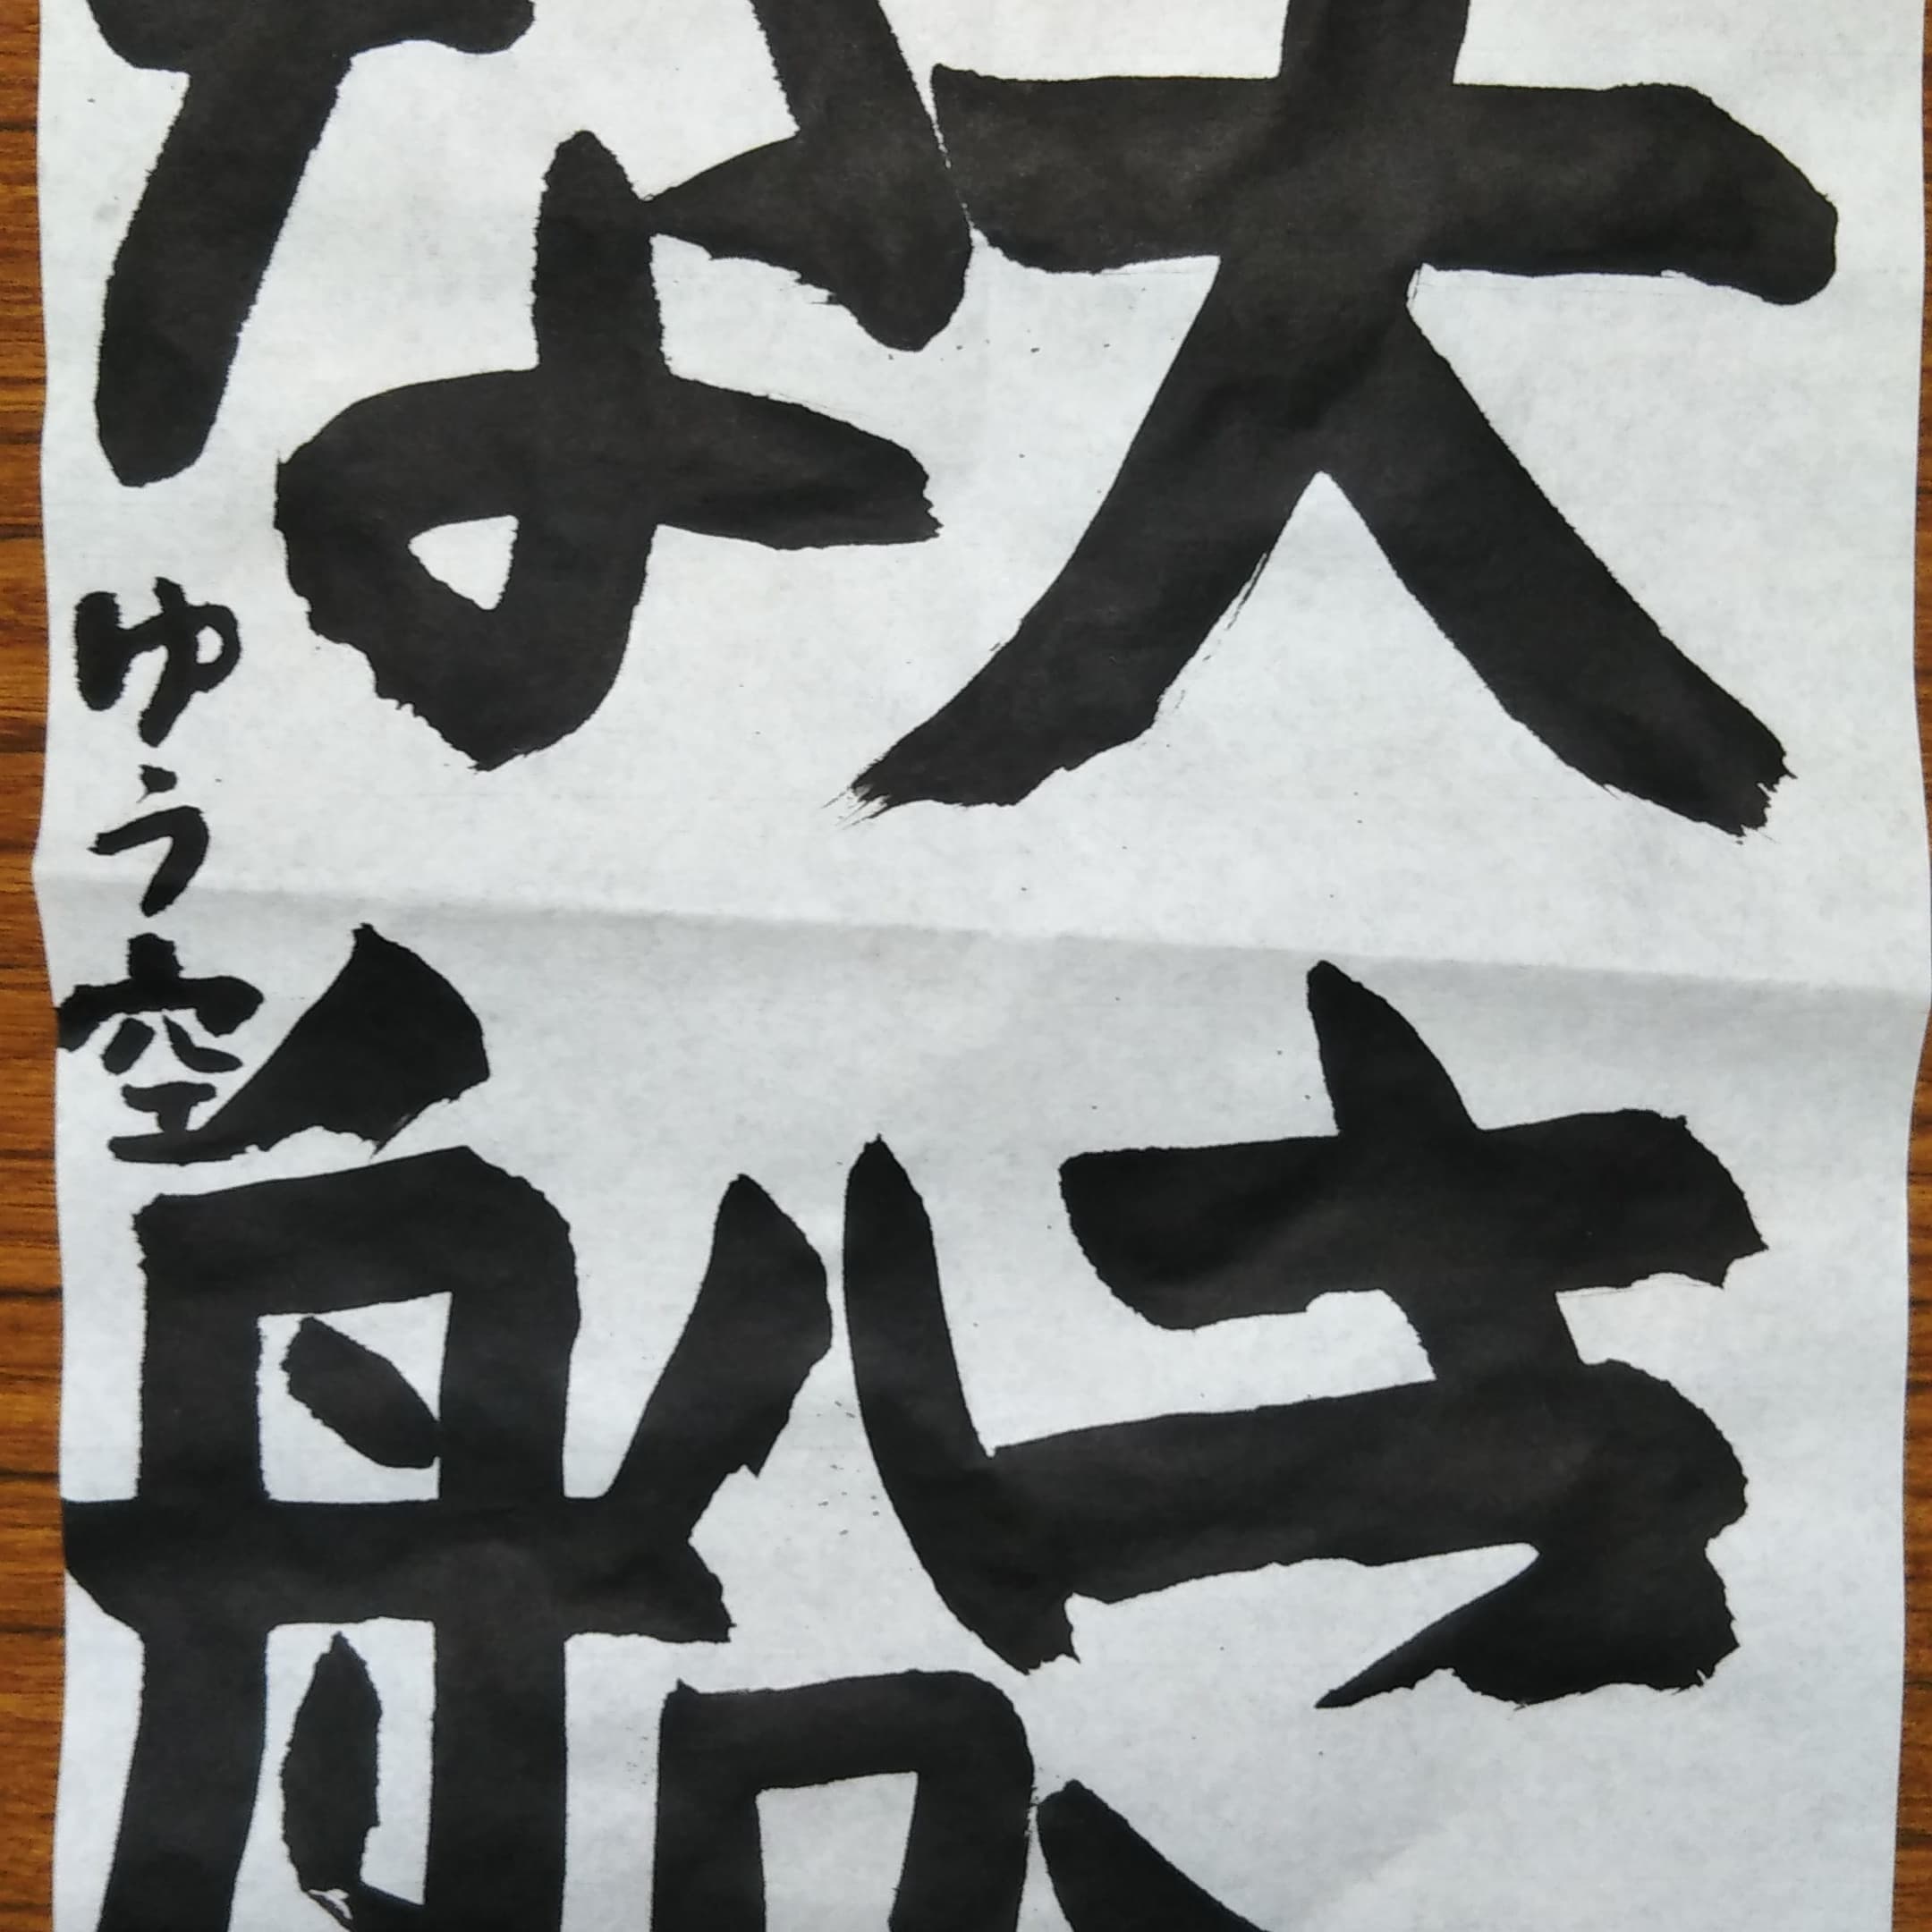 大き
な船
ゆう空